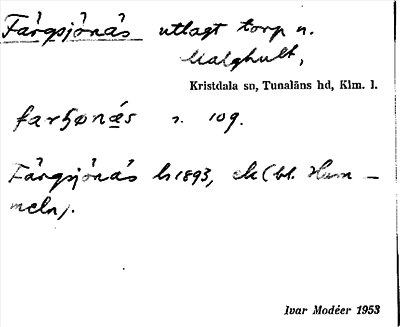 Färgsjönäs utlagt torp u.
Malghult,
Kristdala sn, Tunaläns hd, Klm. l.
farʂønás s. 109.
Färgsjönäs hs 1893, ek (bl. Hum–
meln).
Ivar Modéer 1953